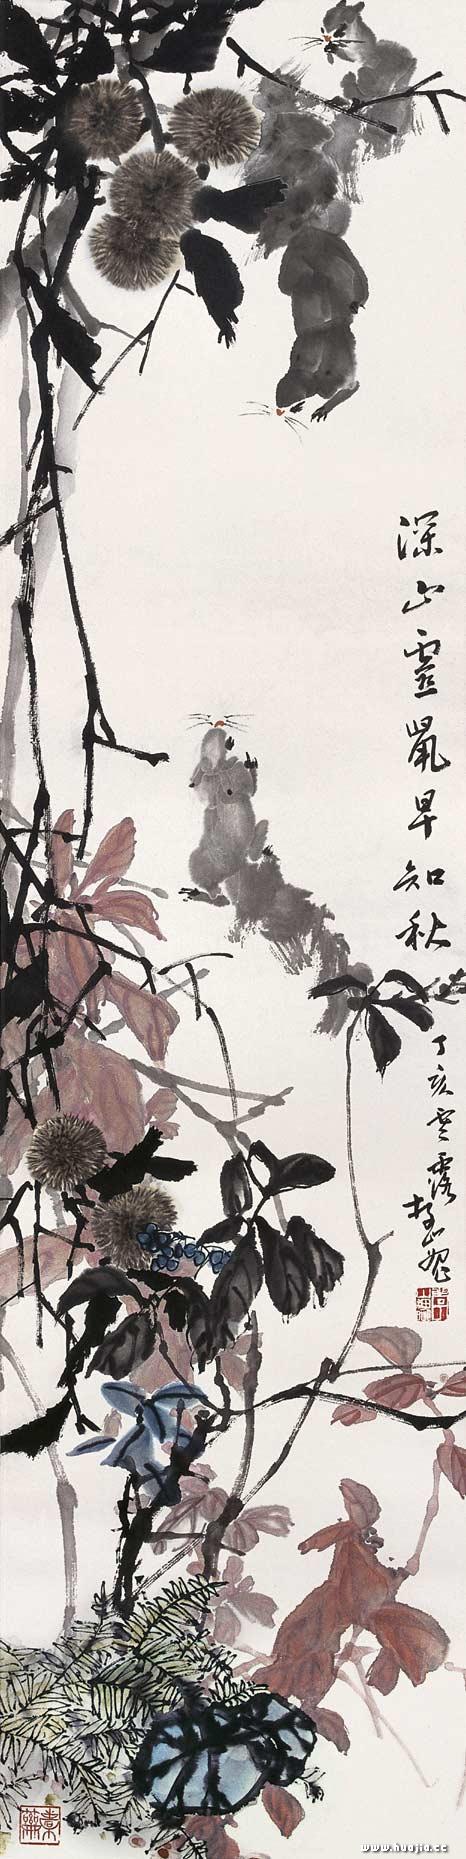 深山靈鼠早知秋
丁亥寒露
www.huajia.cc